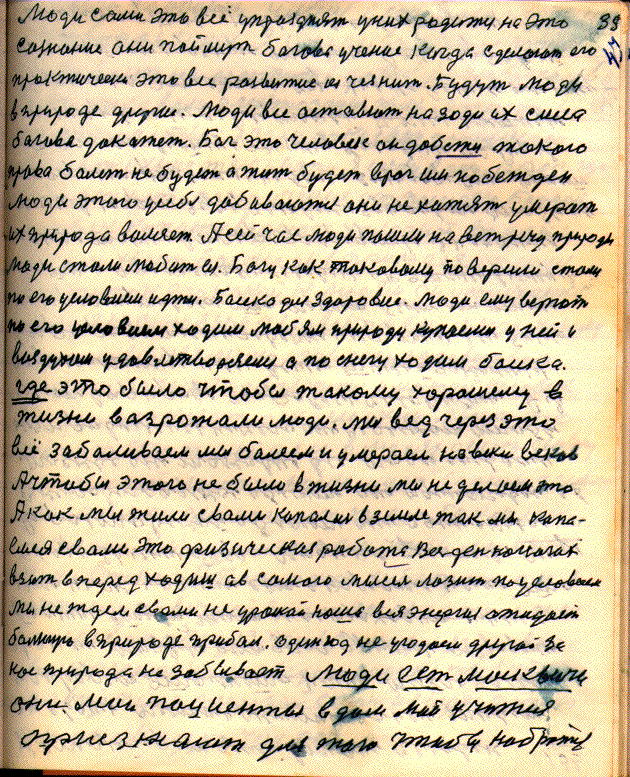 Люди сами это всё упразднят у них родится на это 39
сознание они поймут богова учение когда сделают его 43
практически это все развитие исчезнит. Будут люди
в природе другие. Люди все оставют находи их сила
богова докажет. Бог это человек он добети такого
права болет не будет а жит будет враг им побежден
люди этого усебя добиваются они не хатят умерат
их природа валяет. А сей час люди пошли на встречу природи
люди стали любится. Богу как таковому поверили стали
по его условием идти. Боско для здоровие. Люди ему верют
по его условием ходим любям природу купаемся у ней и
воздухом удовлетворяемся а по снегу ходим боска.
где это было чтобы такому хорошему в
жизни вазрожали люди. Мы вед через это
всё забаливаем мы болеем и умераем на веки веков
А чтобы этого не было в жизни мы не делаем это.
А как мы жили свами копалис в земле так мы копа-
емся свами это физическая работа
взят вперед ходим ав самого мысля лазит по условием
мы не ждем свами не урожай наша вся энергия ажидает
в природе прибал. один год не угодаем другой за
кос природа не забывает люди ест москвичи
они мои пациенты в дом мой учится
приезжают для того чтобы набратся